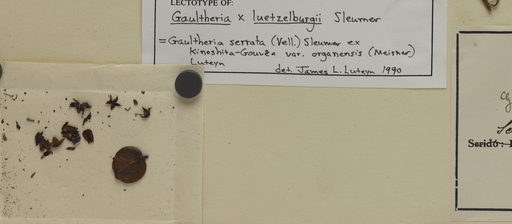 LECTOTYPE OF:
Gaultheria x luetzelburgii Sleumer
= Gaultheria serrata (Vell.) Sleumer ex
Kinoshita-Gouvêa var. organensis (Meisner)
Luteyn
det. James L. Luteyn 1990
Seridó: